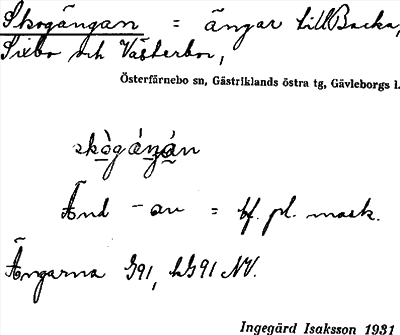 Skogängan = ängar till Backa,
Sixbo och Västerbor,
Österfärnebo sn, Gästriklands östra tg, Gävleborgs l.
Änd -an = bf. pl. mask.
Ängarna G91, hG91 NV.
Ingegärd Isaksson 1931